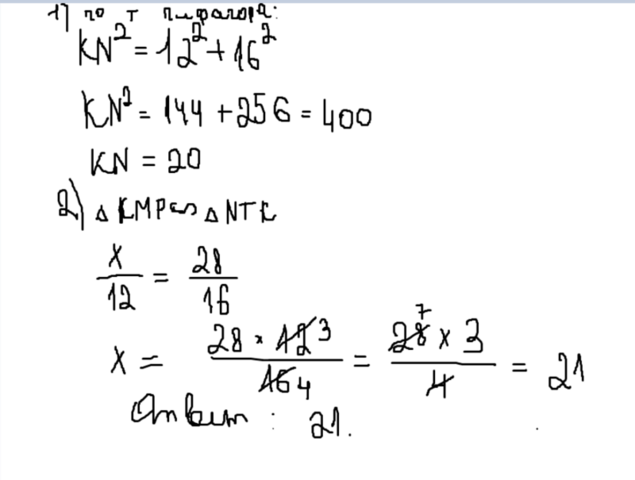 1) по т пифагора:
KN² = 12² + 16²
KN² = 144 + 256 = 400
KN = 20
2) △KMP ∾ △NTK
x/12 = 28/16
x = 28 × 12 3 / 16 4 = 28 7 × 3 / 4 = 21
Ответ : 21.